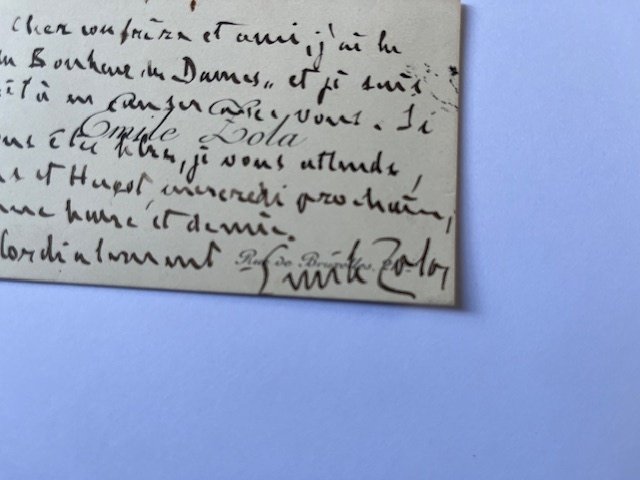 cher confrère et ami, j'ai lu
Bonheur des Dames,, et je suis
à en causer avec vous. Si
Emile Zola
êtes libre, je vous attends,
et Hugot, mercredi prochain,
une heure et demie.
Cordialement
Rue de Bruxelles
Emile Zola